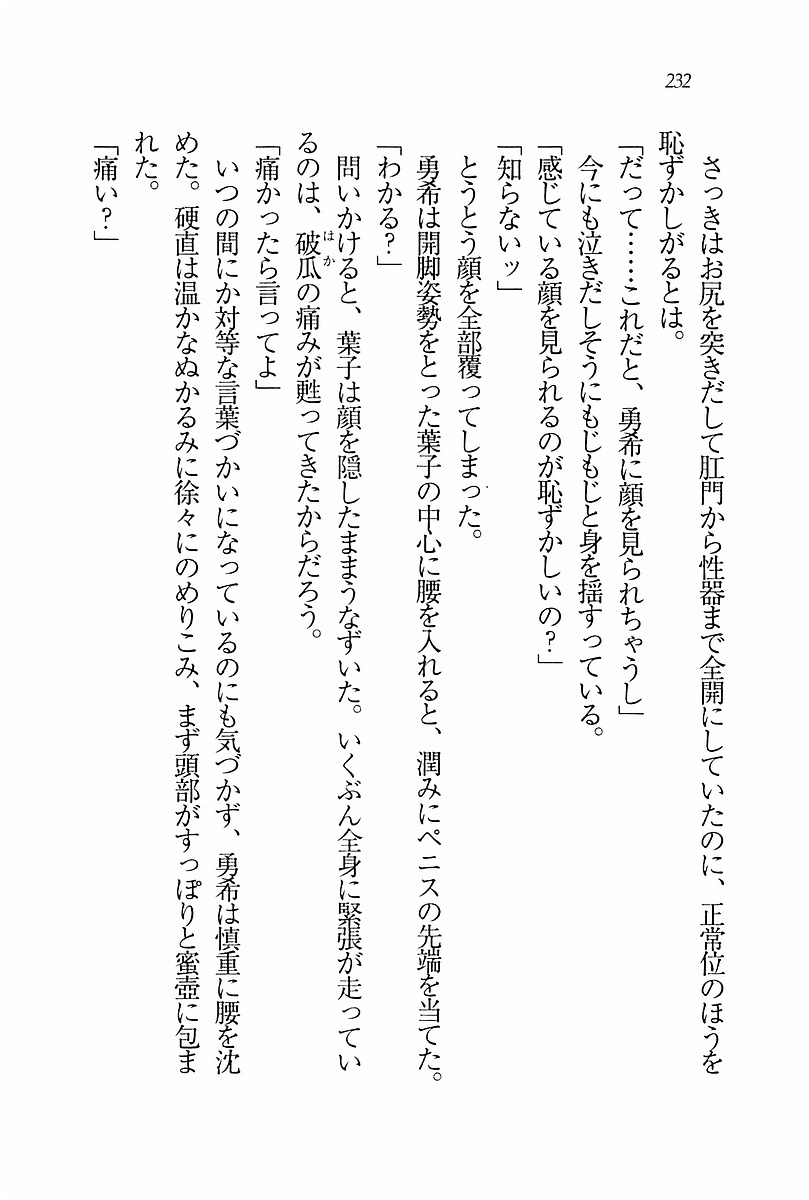 232
さっきはお尻を突きだして肛門から性器まで全開にしていたのに、正常位のほうを
恥ずかしがるとは。
「だって……これだと、勇希に顔を見られちゃうし」
今にも泣きだしそうにもじもじと身を揺すっている。
「感じている顔を見られるのが恥ずかしいの？」
「知らないッ」
とうとう顔を全部覆ってしまった。
勇希は開脚姿勢をとった葉子の中心に腰を入れると、潤みにペニスの先端を当てた。
「わかる？」
問いかけると、葉子は顔を隠したままうなずいた。いくぶん全身に緊張が走ってい
るのは、破瓜はかの痛みが甦ってきたからだろう。
「痛かったら言ってよ」
いつの間にか対等な言葉づかいになっているのにも気づかず、勇希は慎重に腰を沈
めた。硬直は温かなぬかるみに徐々にのめりこみ、まず頭部がすっぽりと蜜壺に包ま
れた。
「痛い？」